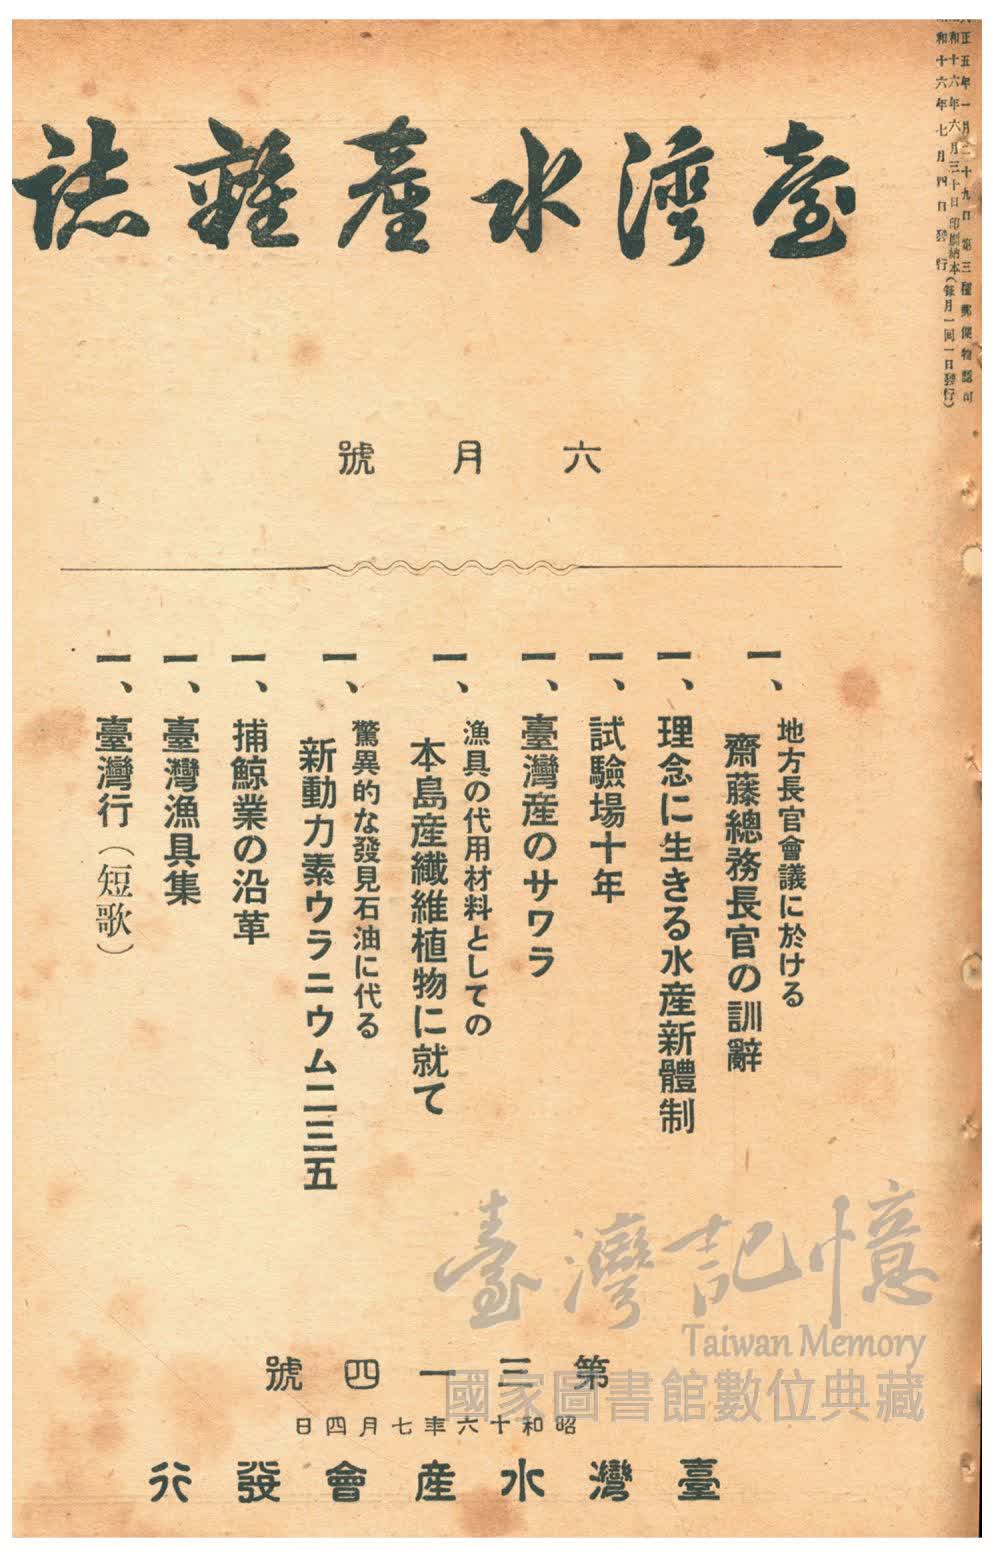 大正五年一月二十九日第三種郵便物認可
昭和十六年六月三十日印刷納本（每月一回一日發行）
昭和十六年七月四日發行
臺灣水產雜誌
六月號
一、地方長官會議に於ける
齋藤總務長官の訓辭
一、理念に生きる水産新體制
一、試驗場十年
一、臺灣産のサワラ
一、漁具の代用材料としての
本島産纖維植物に就て
一、驚異的な發見石油に代る
新動力素ウラニウム二三五
一、捕鯨業の沿革
一、臺灣漁具集
一、臺灣行（短歌）
第三一四號
昭和十六年七月四日
臺灣水産會發行
臺灣記憶
Taiwan Memory
國家圖書館數位典藏